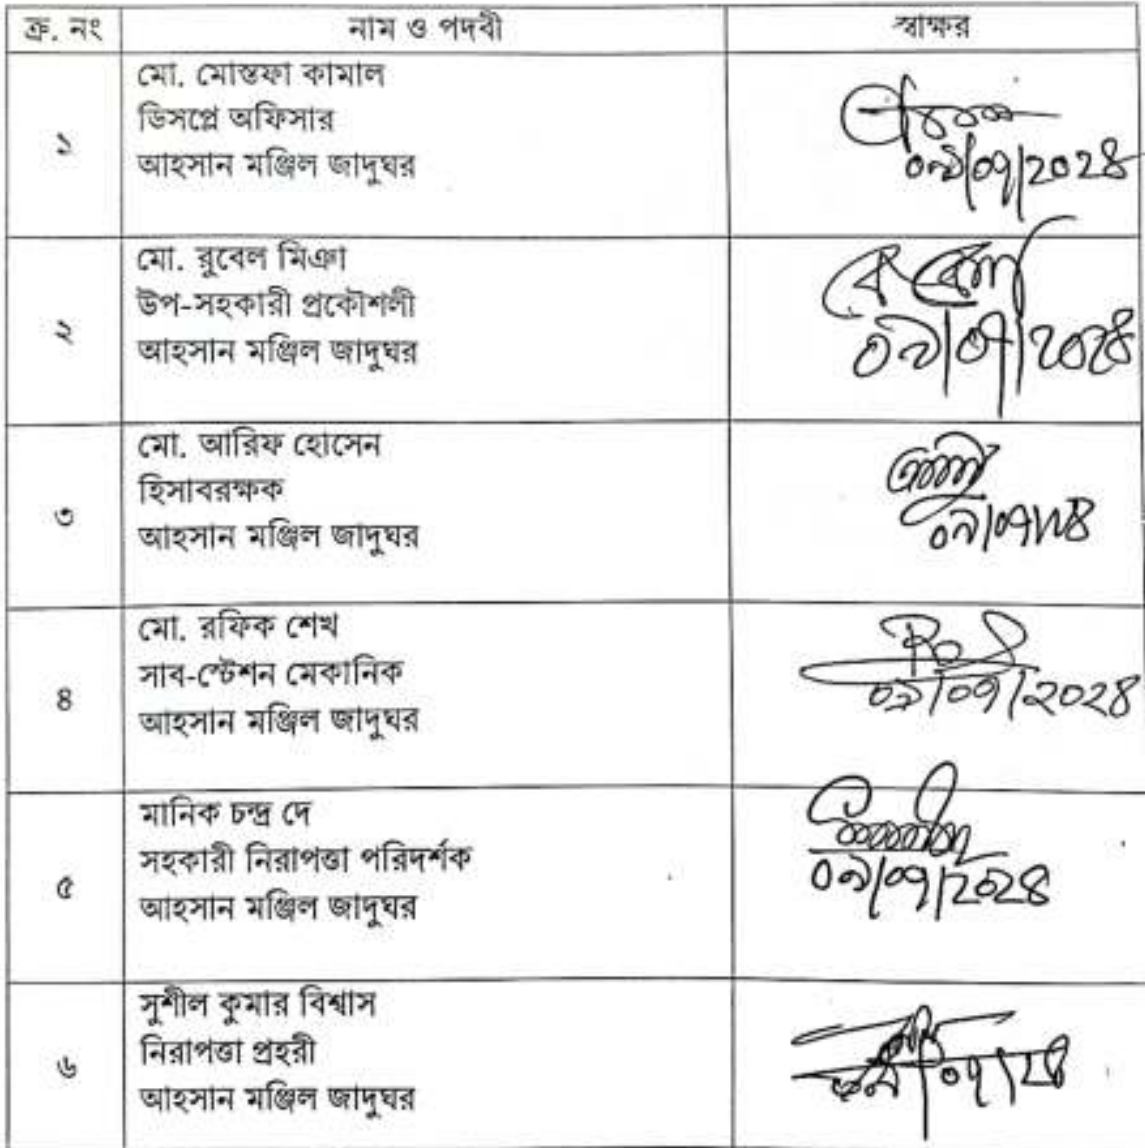 ক্র. নং নাম ও পদবী স্বাক্ষর
১
মো. মোস্তফা কামাল
ডিসপ্লে অফিসার
আহসান মঞ্জিল জাদুঘর
০৯/০৭/২০২৪
২
মো. রুবেল মিঞা
উপ-সহকারী প্রকৌশলী
আহসান মঞ্জিল জাদুঘর
০৯/০৭/২০২৪
৩
মো. আরিফ হোসেন
হিসাবরক্ষক
আহসান মঞ্জিল জাদুঘর
০৯/০৭/২৪
৪
মো. রফিক শেখ
সাব-স্টেশন মেকানিক
আহসান মঞ্জিল জাদুঘর
০৯/০৭/২০২৪
৫
মানিক চন্দ্র দে
সহকারী নিরাপত্তা পরিদর্শক
আহসান মঞ্জিল জাদুঘর
০৯/০৭/২০২৪
৬
সুশীল কুমার বিশ্বাস
নিরাপত্তা প্রহরী
আহসান মঞ্জিল জাদুঘর